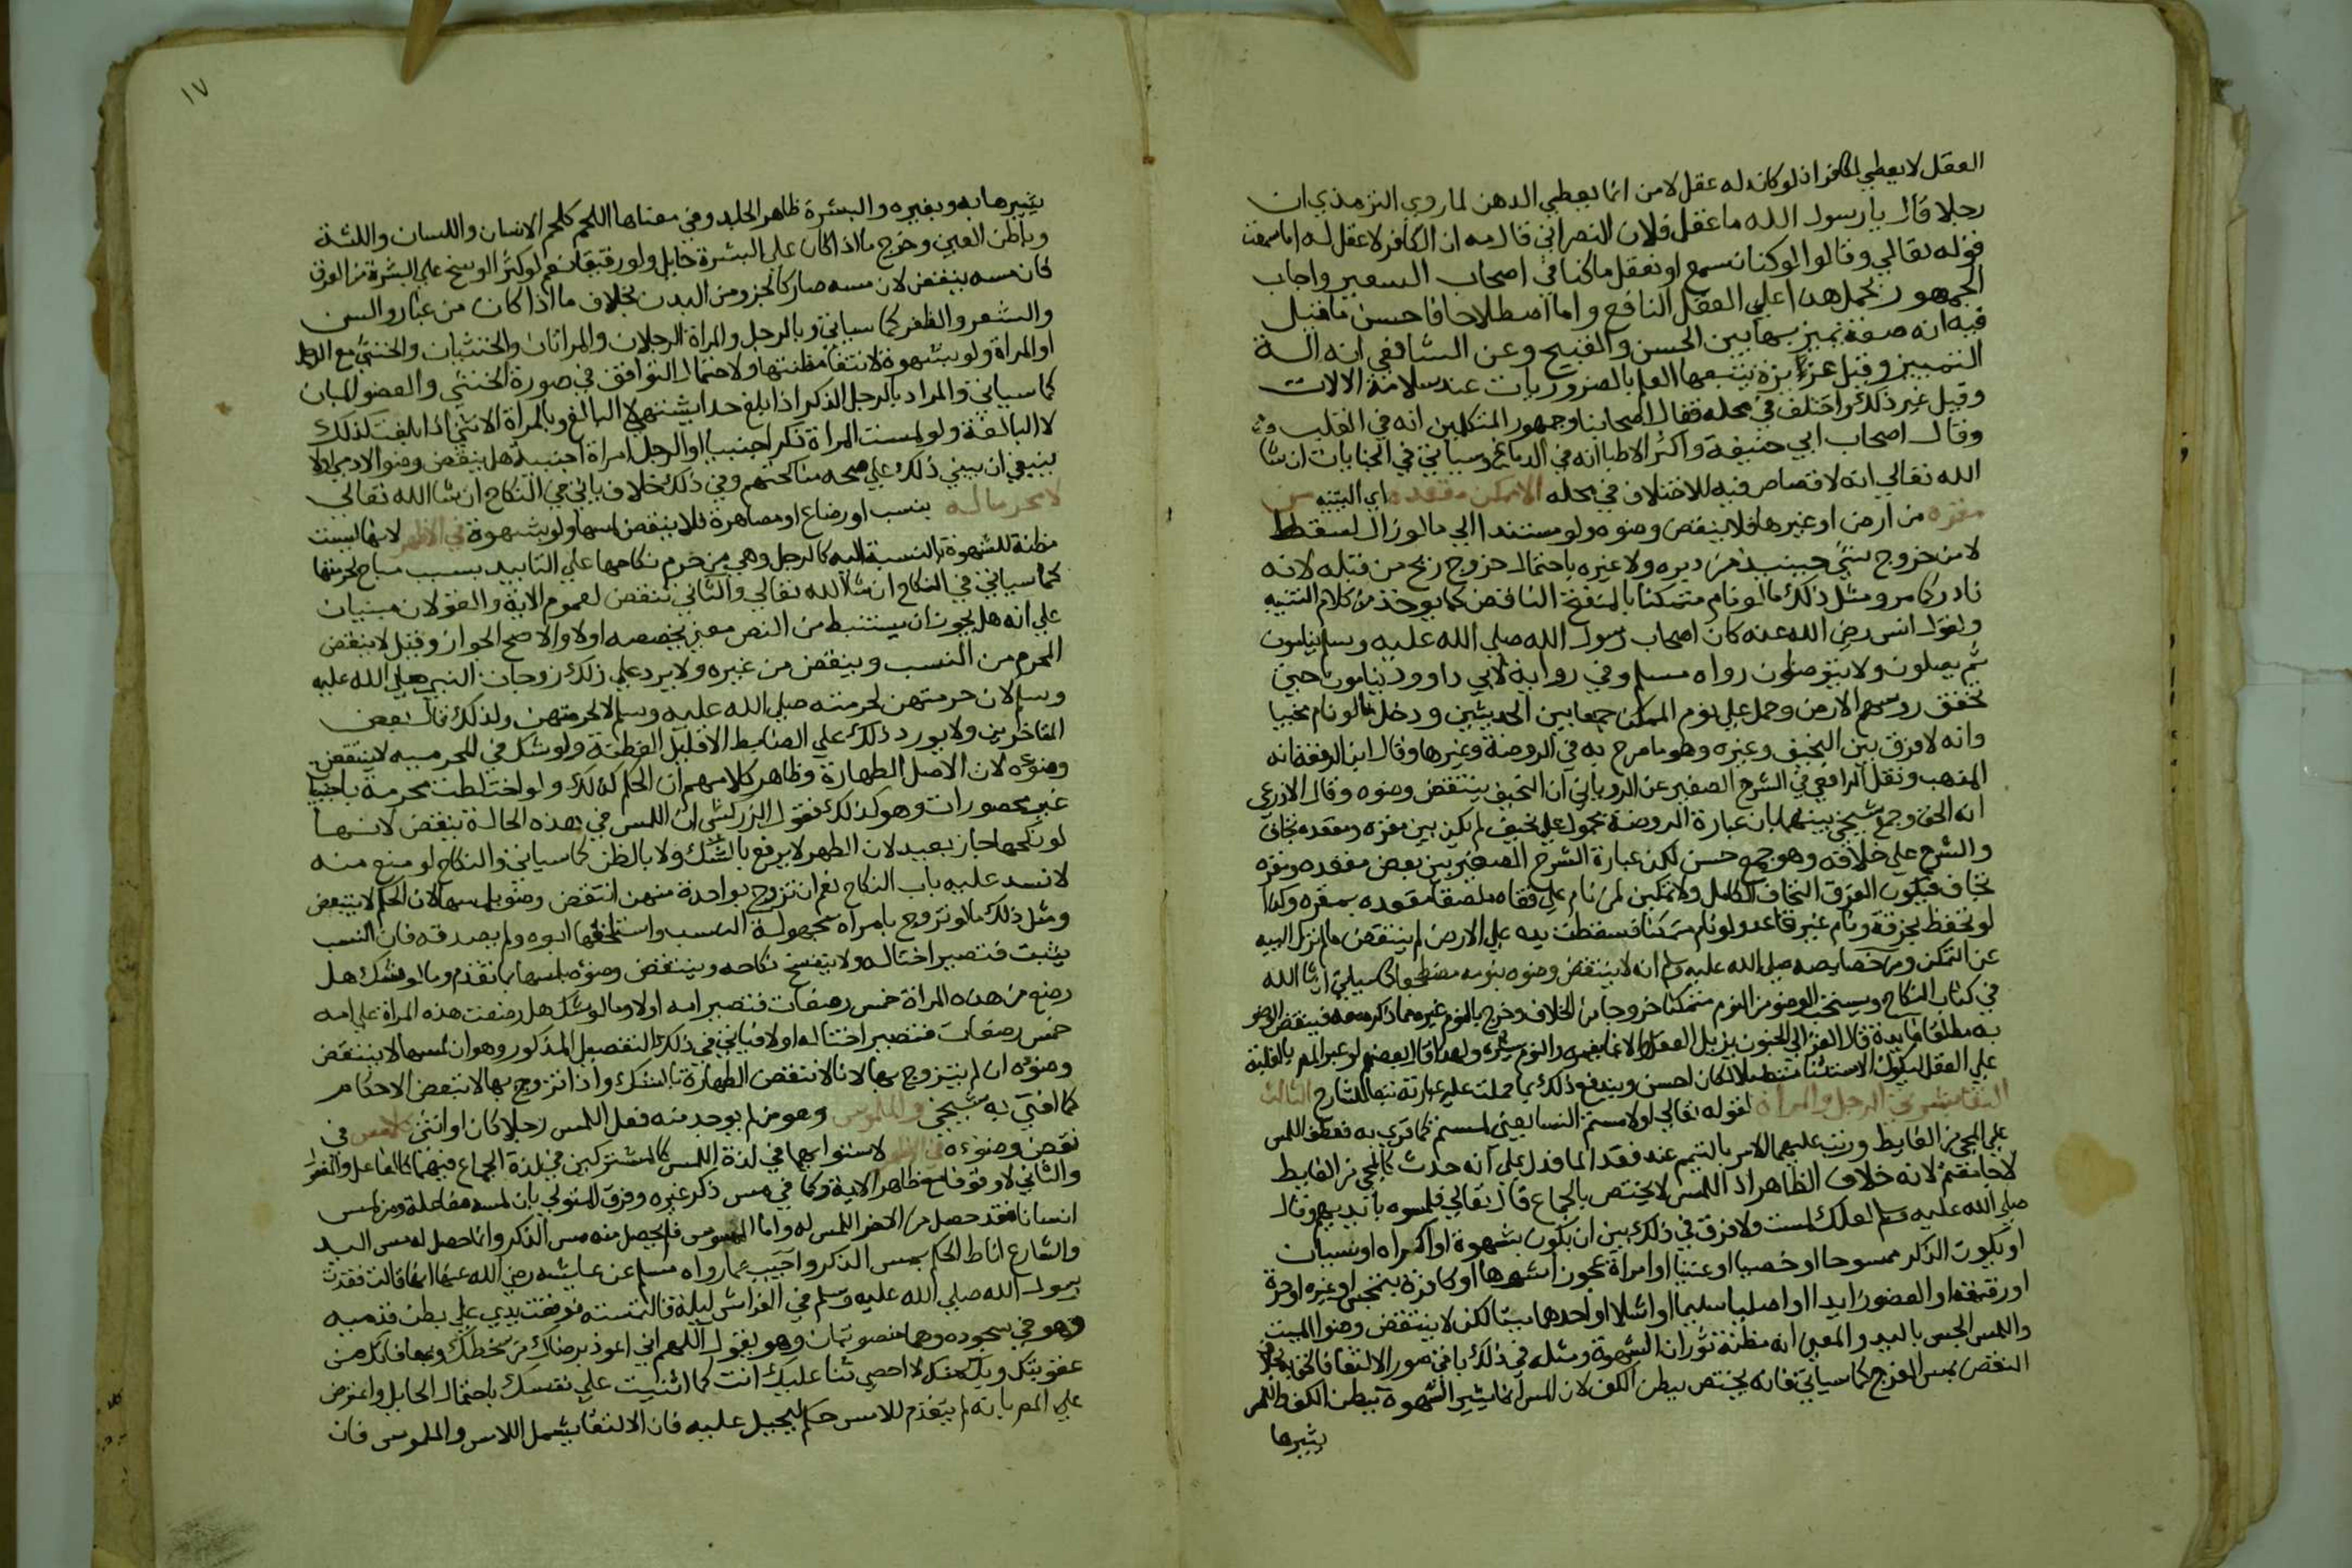 العقل لا يعطي للكافر اذ لو كان له عقل لامن انما يعطي الذهن لما روي الترمذي ان
رجلا قال يا رسول الله ما اعقل فلان النصراني فقال مه ان الكافر لا عقل له اما سمعت
قوله تعالي وقالوا لو كنا نسمع او نعقل ما كنا في اصحاب السعير واجاب
الجمهور بحمل هذا علي العقل النافع واما اصطلاحا فاحسن ما قيل
فيه انه صفة يميز بها بين الحسن والقبيح وعن الشافعي انه الة
التمييز وقيل غريزة يتبعها العلم بالضروريات عند سلامة الالات
وقيل غير ذلك واختلف في محله فقال اصحابنا وجمهور المتكلمين انه في القلب
وقال اصحاب ابي حنيفة واكثر الاطبا انه في الدماغ وسياتي في الجنايات ان شا
الله تعالي انه لا قصاص فيه للاختلاف في محله الا نوم ممكن مقعده اي اليتيه من
مقره من ارض او غيرها فلا ينقض وضوه ولو مستندا الي ما لو زال لسقط
لامن خروج شيء حينيذ من دبره ولا عبرة باحتمال خروج ريح من قبله لانه
نادر كما مر ومثل ذلك ما لو نام متمكنا بالمنفتح الناقض كما يوخذ من كلام التنبيه
ولقول انس رضي الله عنه كان اصحاب رسول الله صلي الله عليه وسلم ينامون
ثم يصلون ولا يتوضاون رواه مسلم وفي رواية لابي داوود ينامون حتي
تخفق روسهم الارض وحمل علي نوم الممكن جمعا بين الحديثين ودخل ما لو نام محتبيا
وانه لا فرق بين النحيف وغيره وهو ما صرح به في الروضة وغيرها وقال ابن الرفعة انه
المذهب ونقل الرافعي في الشرح الصغير عن الروياني ان النحيف ينتقض وضوه وقال الاذرعي
انه الحق وجمع شيخي بينهما بان عبارة الروضة محمولة علي نحيف لم يكن بين مقره ومقعده تجاف
والشرح علي خلافه وهو جمع حسن لكن عبارة الشرح الصغير بين بعض مقعده ومقره
تجاف فيكون الفرق التجاف الكامل ولا تمكين لمن نام علي قفاه ملصقا مقعده بمقره وكذا
لو تحفظ بخرقة ونام غير قاعد ولو نام متمكنا فسقطت يده علي الارض لم ينتقض ما لم تزل اليته
عن التمكن ومن خصايصه صلي الله عليه وسلم انه لا ينتقض وضوه بنومه مضطجعا كما سياتي ان شا الله
في كتاب النكاح ويستحب الوضو من النوم متمكنا خروجا من الخلاف وخرج بالنوم غيره مما ذكر معه فينقض الوضو
به مطلقا فايدة قال الغزالي الجنون يزيل العقل والاغما يغمره والنوم يستره ولهذا قال بعضهم لو عبر المص بالغلبة
علي العقل ليكون الاستثنا متصلا لكان احسن ويندفع ذلك بما حملت عليه عبارته تبعا للشارح الثالث
التقا بشرتي الرجل والمراة لقوله تعالي اولامستم النسا يعني لمستم كما قري به فعطف اللمس
علي المجي من الغايط ورتب عليهما الامر بالتيمم عند فقد الما فدل علي انه حدث كالمجي من الغايط
لا جامعتم لانه خلاف الظاهر اذ اللمس لا يختص بالجماع قال تعالي فلمسوه بايديهم وقال
صلي الله عليه وسلم لعلك لمست ولا فرق في ذلك بين ان يكون بشهوة او اكراه او نسيان
او يكون الذكر ممسوحا او خصيا او عنينا او امراة عجوزا شوها او كافرة بتمجس او غيره او حرة
او رقيقة او العضو زايدا او اصليا سليما او اشلا او احدهما ميتا لكن لا ينتقض وضو الميت
واللمس الجس باليد والمعني انه مظنة ثوران الشهوة ومثله في ذلك باقي صور الالتقا فالحق به بخلاف
النقض بمس الفرج كما سياتي فانه يختص ببطن الكف لان المس انما يثير الشهوة ببطن الكف واللمس
يثيرها
١٧
يثيرها به وبغيره والبشرة ظاهر الجلد وفي معناها اللحم كلحم الاسنان واللسان واللثة
وباطن العين وخرج ما اذا كان علي البشرة حايل ولو رقيقا نعم لو كثر الوسخ علي البشرة من العرق
كان مسه ينقض لان مسه صار كالجزو من البدن بخلاف ما اذا كان من غبار والسن
والشعر والظفر كما سياتي وبالرجل والمراة الرجلان والمراتان والخنثيان والخنثي مع الرجل
او المراة ولو بشهوة لانتفا مظنتها ولاحتمال التوافق في صورة الخنثي والعضو المبان
كما سياتي والمراد بالرجل الذكر اذا بلغ حدا يشتهي لا البالغ وبالمراة الانثي اذا بلغت كذلك
لا البالغة ولو لمست المراة ذكرا جنيا او الرجل امراة جنية هل ينقض وضو الادمي او لا
ينبغي ان يبني ذلك علي صحة مناكحتهم وفي ذلك خلاف ياتي في النكاح ان شا الله تعالي
لا محرما له بنسب او رضاع او مصاهرة فلا ينقض لمسها ولو بشهوة في الاظهر لانها ليست
مظنة للشهوة بالنسبة اليه كالرجل وهي من حرم نكاحها علي التابيد بسبب مباح لحرمتها
كما سياتي في النكاح ان شا الله تعالي والثاني تنقض لعموم الاية والقولان مبنيان
علي انه هل يجوز ان يستنبط من النص معني يخصصه اولا والاصح الجواز وقيل لا ينقض
المحرم من النسب وينقض من غيره ولا يرد علي ذلك زوجات النبي صلي الله عليه
وسلم لان حرمتهن لحرمته صلي الله عليه وسلم لا لحرمتهن ولذلك قال بعض
المتاخرين ولا يورد ذلك علي الضابط الا قليل الفطنة ولو شك في المحرميه لا ينتقض
وضوءه لان الاصل الطهارة وظاهر كلامهم ان الحكم كذلك ولو اختلطت محرمة باجنبيات
غير محصورات وهو كذلك فقول الزركشي ان اللمس في هذه الحالة ينقض لانها
لو نكحها جاز بعيد لان الطهر لا يرفع بالشك ولا بالظن كما سياتي والنكاح لو منع منه
لانسد عليه باب النكاح نعم ان تزوج بواحدة منهن انتقض وضوه بلمسها لان الحكم لا يتبعض
ومثل ذلك ما لو تزوج بامراة مجهولة النسب واستلحقها ابوه ولم يصدقه فان النسب
يثبت فتصير اختا له ولا ينفسخ نكاحه وينتقض وضوه بلمسها لما تقدم وما لو شك هل
رضع من هذه المراة خمس رضعات فتصير امه اولا وما لو شك هل رضعت هذه المراة علي امه
خمس رضعات فتصير اختا له اولا فياتي في ذلك التفصيل المذكور وهو ان لمسها لا ينقض
وضوه ان لم يتزوج بها لانا لا ننقض الطهارة بالشك واذا تزوج بها لا نبعض الاحكام
كما افتي به شيخي والملموس وهو من لم يوجد منه فعل اللمس رجلا كان او انثي كلامس في
نقض وضوءه في الاظهر لاستوايهما في لذة اللمس كالمشتركين في لذة الجماع فهما كالفاعل والمفعول
والثاني لا وقوفا مع ظاهر الاية وكما في مس ذكر غيره وفرق المتولي بان لمس مفاعلة ومن لمس
انسانا فقد حصل من الاخر اللمس له واما الممسوس فلم يحصل منه مس الذكر وانما حصل له مس اليد
والشارع اناط الحكم بمس الذكر واجيب عما رواه مسلم عن عايشة رضي الله عنها انها قالت فقدت
رسول الله صلي الله عليه وسلم في الفراش ليلة فالتمسته فوقعت يدي علي بطن قدميه
وهو في سجوده وهما منصوبتان وهو يقول اللهم اني اعوذ برضاك من سخطك وبمعافاتك من
عقوبتك وبك منك لا احصي ثنا عليك انت كما اثنيت علي نفسك باحتمال الحايل واعترض
علي المص بانه لم يتقدم للامس حكم ليحيل عليه فان الالتقا يشمل اللامس والملموس فان